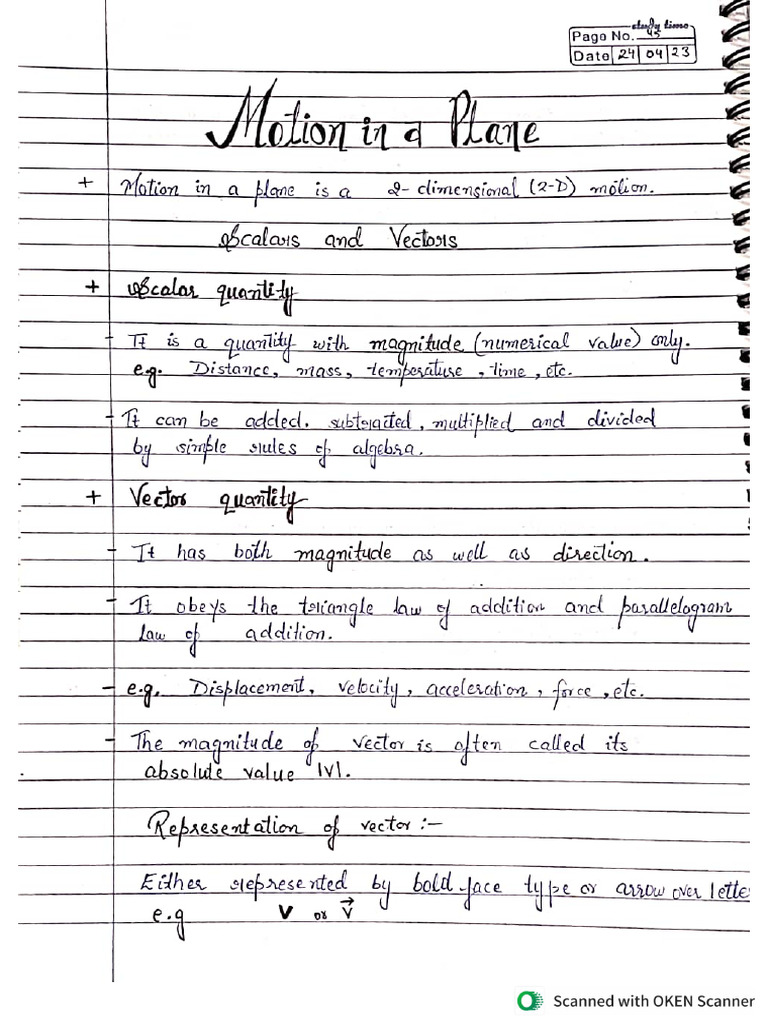 study time
Page No. 45
Date 24 04 23
Motion in a Plane
+ Motion in a plane is a 2-dimensional (2-D) motion.
Scalars and Vectors
+ Scalar quantity
- It is a quantity with magnitude (numerical value) only.
e.g. Distance, mass, temperature, time, etc.
- It can be added, subtracted, multiplied and divided
by simple rules of algebra.
+ Vector quantity
- It has both magnitude as well as direction.
- It obeys the triangle law of addition and parallelogram
law of addition.
- e.g. Displacement, velocity, acceleration, force, etc.
- The magnitude of vector is often called its
absolute value |v|.
Representation of vector :-
Either represented by bold face type or arrow over lette
e.g V or V⃗
Scanned with OKEN Scanner